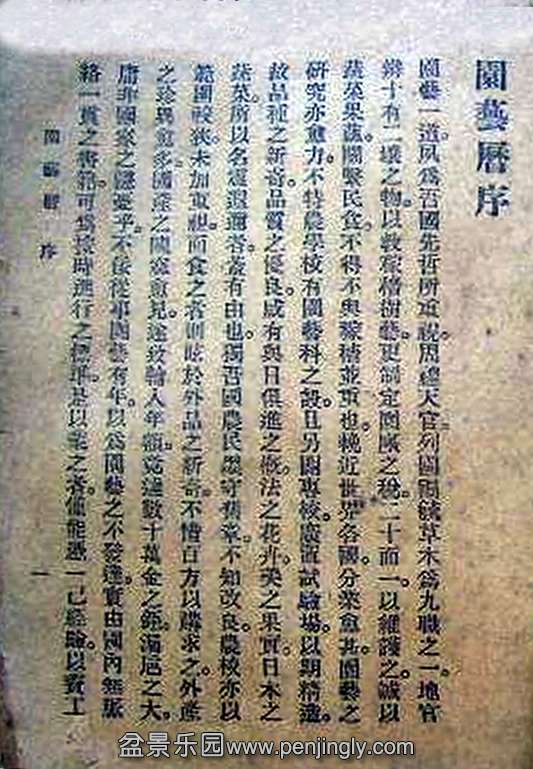 園藝曆序
園藝一道。夙爲吾國先哲所重視。周禮天官。列園圃毓草木爲九職之一。地官
辨十有二壤之物。以敎稼穡樹藝。更制定園廛之稅。二十而一。以維護之。誠以
蔬菜果蓏。關繫民食。不得不與稼穡並重也。輓近世界各國。分業愈甚。園藝之
研究亦愈力。不特農學校有園藝科之設。且另闢專校。廣置試驗場。以期精進。
故品種之新奇。品質之優良。咸有與日俱進之槪。法之花卉。美之果實。日本之
蔬菜。所以名震遐邇者。蓋有由也。獨吾國農民。墨守舊章。不知改良。農校亦以
範圍較狹。未加重視。而食之者則眩於外品之新奇。不惜百方以購求之。外產
之珍異愈多。國產之固陋愈見。遂致輸入年額。竟達數十萬金之鉅。漏巵之大。
庸非國家之隱憂乎。不佞從事園藝有年。以爲園藝之不發達。實由國內無脈
絡一貫之書籍。可爲按時進行之標準。是以業之者。僅能憑一己經驗。以資工
園藝曆 序
一
盆景乐园www.penjingly.com